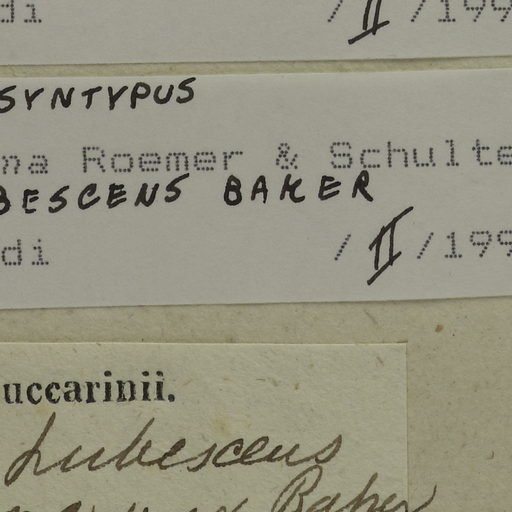 di / II /199
SYNTYPUS
ma Roemer & Schulte
BESCENS BAKER
di / II /199
uccarinii.
pubescens
Baker